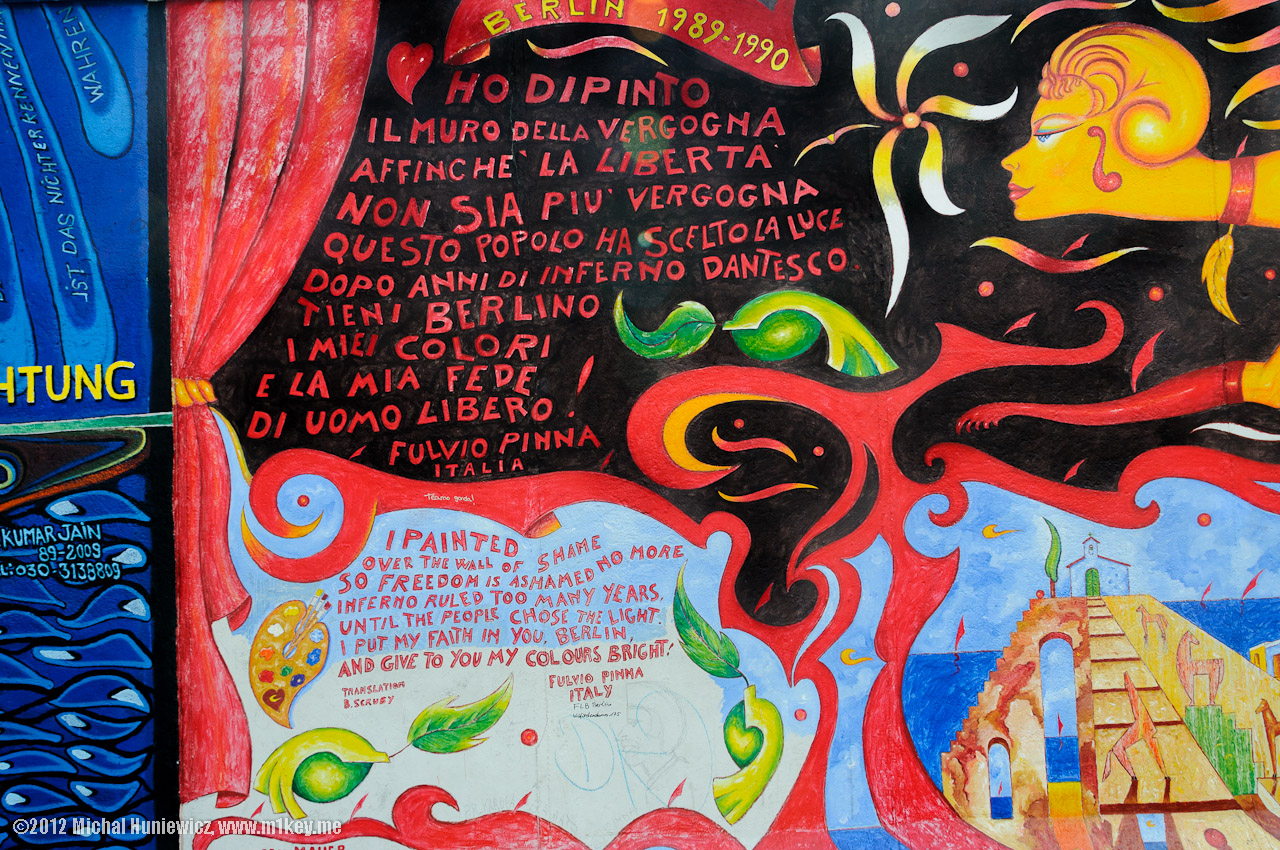 WAHREN
IST DAS NICHTERKENNEN
HTUNG
KUMAR JAIN
89-2009
L:030-3138809
BERLIN 1989-1990
HO DIPINTO
IL MURO DELLA VERGOGNA
AFFINCHE` LA LIBERTA`
NON SIA PIU` VERGOGNA
QUESTO POPOLO HA SCELTO LA LUCE
DOPO ANNI DI INFERNO DANTESCO.
TIENI BERLINO
I MIEI COLORI
E LA MIA FEDE
DI UOMO LIBERO!
FULVIO PINNA
ITALIA
I PAINTED
OVER THE WALL OF SHAME
SO FREEDOM IS ASHAMED NO MORE
INFERNO RULED TOO MANY YEARS.
UNTIL THE PEOPLE CHOSE THE LIGHT.
I PUT MY FAITH IN YOU, BERLIN,
AND GIVE TO YOU MY COLOURS BRIGHT!
TRANSLATION
FULVIO PINNA
ITALY
©2012 Michal Huniewicz, www.m1key.me
MAUER